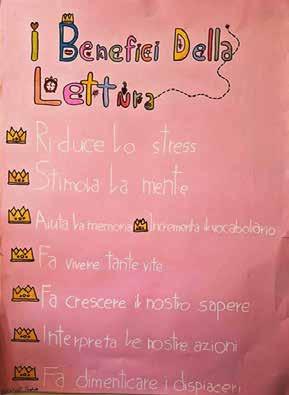 I Benefici Della
Lettura
Riduce lo stress
Stimola la mente
Aiuta la memoria Incrementa il vocabolario
Fa vivere tante vite
Fa crescere il nostro sapere
Interpreta le nostre azioni
Fa dimenticare i dispiaceri